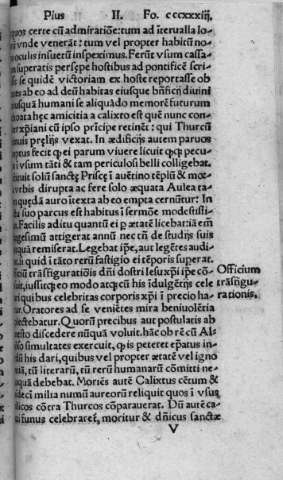 Pius II. Fo. cccxxxiij.
quos certe cū admiratiōe: tum ad īterualla lo-
i vnde venerāt: tum vel propter habitū no-
oculis insuetū inspeximus. Ferūt vsum cassa-
n superatis persępe hostibus ad pontificē scri-
se se quidē victoriam ex hoste reportasse ob
ts ab eo ad deū habitas eiusque bn̄ficij diuini
usquā humani se aliquādo memorē futurum
noata hęc amicitia a calixto est quē nunc con-
xp̄iani cū ipso prīcipe retinēt: qui Thurcū
inuis prelijs vexat. In ædificijs autem paruos
ptus fecit ꝙ ei parum viuere licuit ꝙꝗ pecu-
i vsum tāti & tam periculosi belli colligebat.
cuit solū sanctę Priscę ī auētino tēplū & mœ-
vrbis dirupta ac fere solo æquata Aulea ta-
quędā auro ītexta ab eo empta cernūtur: In
tu suo parcus est habitus ī sermōe modestissi-
Facilis aditu quantū ei ꝓ ætatē licebat: iā em̄
gesimū attigerat annū nec tn̄ de studijs suis
quā remiserat. Legebat ip̄e, aut legētes audi-
si quid ī tāto rerū fastigio ei tēporis superat.
iū trāsfiguratiōis dn̄i dostri Iesuxp̄i ip̄e cō-
uit, iussitq; eo modo atq; cū his īdulgētijs cele
ri quibus celebritas corporis xp̄i ī precio ha-
Officium
trāsfigu-
rationis.
ur. Oratores ad se veniētes mira beniuolētia
plectebatur. Quorū precibus aut postulatis ab
esto discedere nūquā voluit. hāc ob rē cū Al-
so simultates exercuit, ꝙ is peteret ep̄atus in-
dū his dari, quibus vel propter ætatē vel igno
iā, tū literarū, tū rerū humanarū cōmitti ne-
uquā debebat. Moriēs autē Calixtus cētum &
decī milia numū aureorū reliquit quos ī vsus
licos cōtra Thurcos cōparauerat. Dū autē ca-
funus celebraret, moritur & dn̄icus sanctæ
V